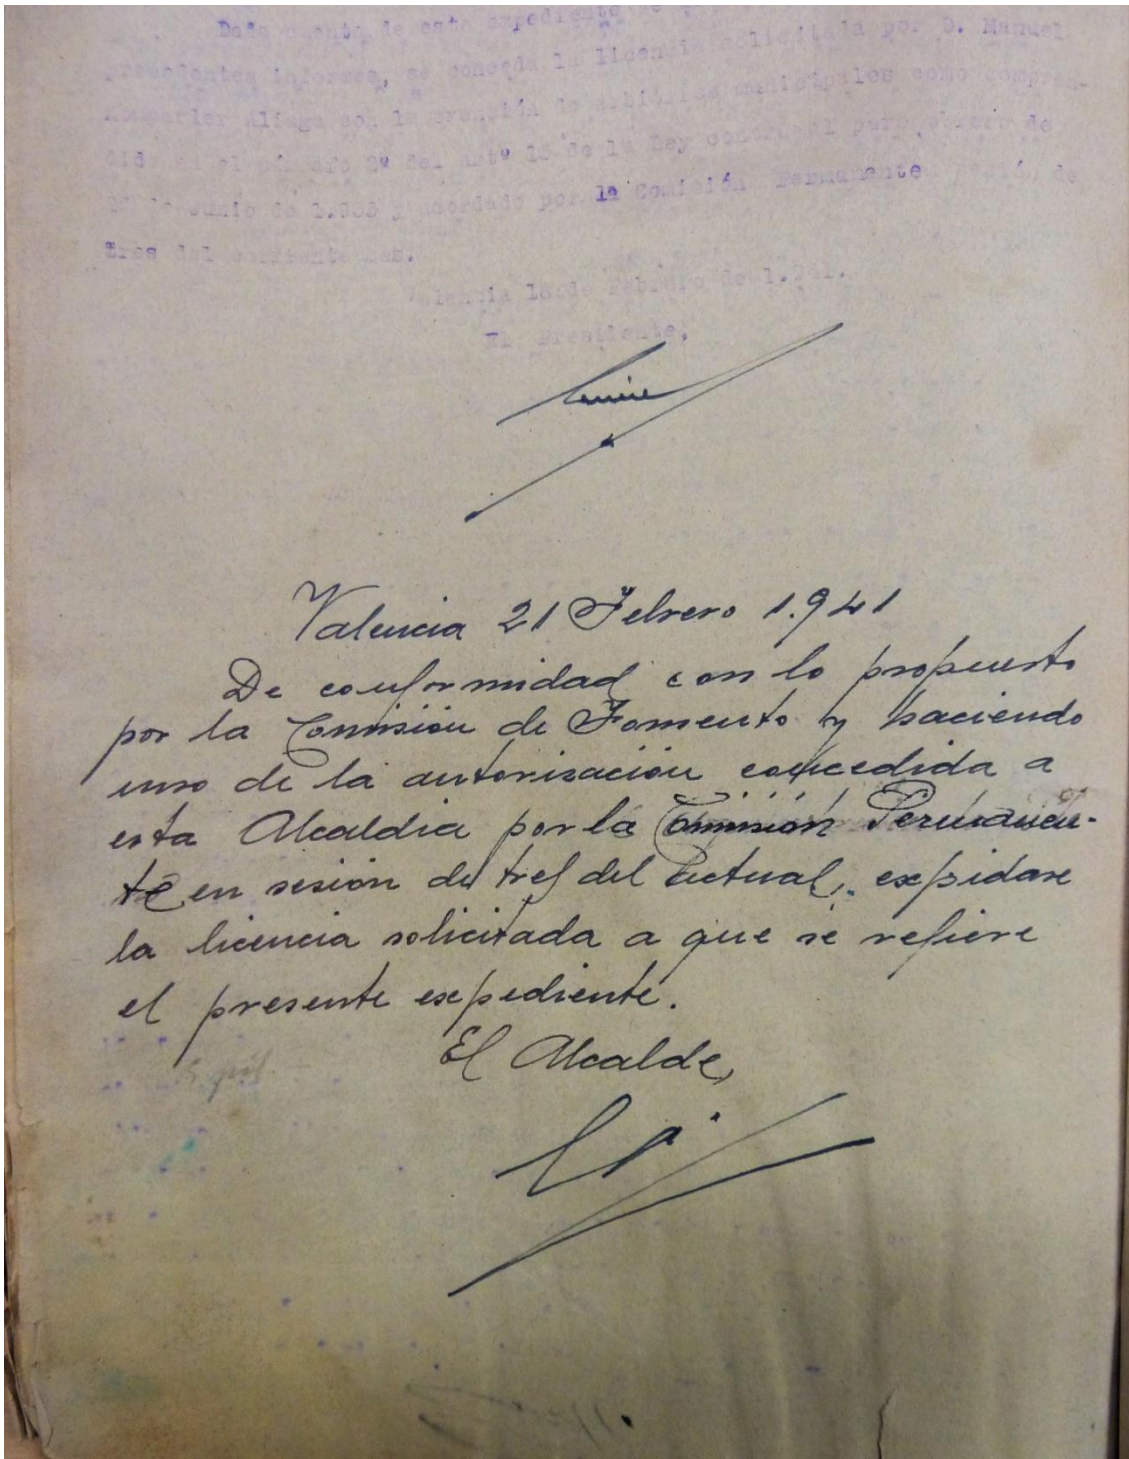 Dada cuenta de este expediente
precedentes informes, se conceda la licencia solicitada por D. Manuel
Aliaga con la exención de arbitrios municipales como compren-
dido en el párrafo 2º del artº 15 de la Ley contra el paro obrero de
de Junio de 1.935 y acordado por la Comisión Permanente sesión de
tres del corriente mes.
Valencia de Febrero de 1.941.
El Presidente,
Valencia 21 Febrero 1.941
De conformidad con lo propuesto
por la Comisión de Fomento y haciendo
uso de la autorización concedida a
esta Alcaldia por la Comisión Permanen-
te en sesión de tres del actual, expidase
la licencia solicitada a que se refiere
el presente expediente.
El Alcalde,